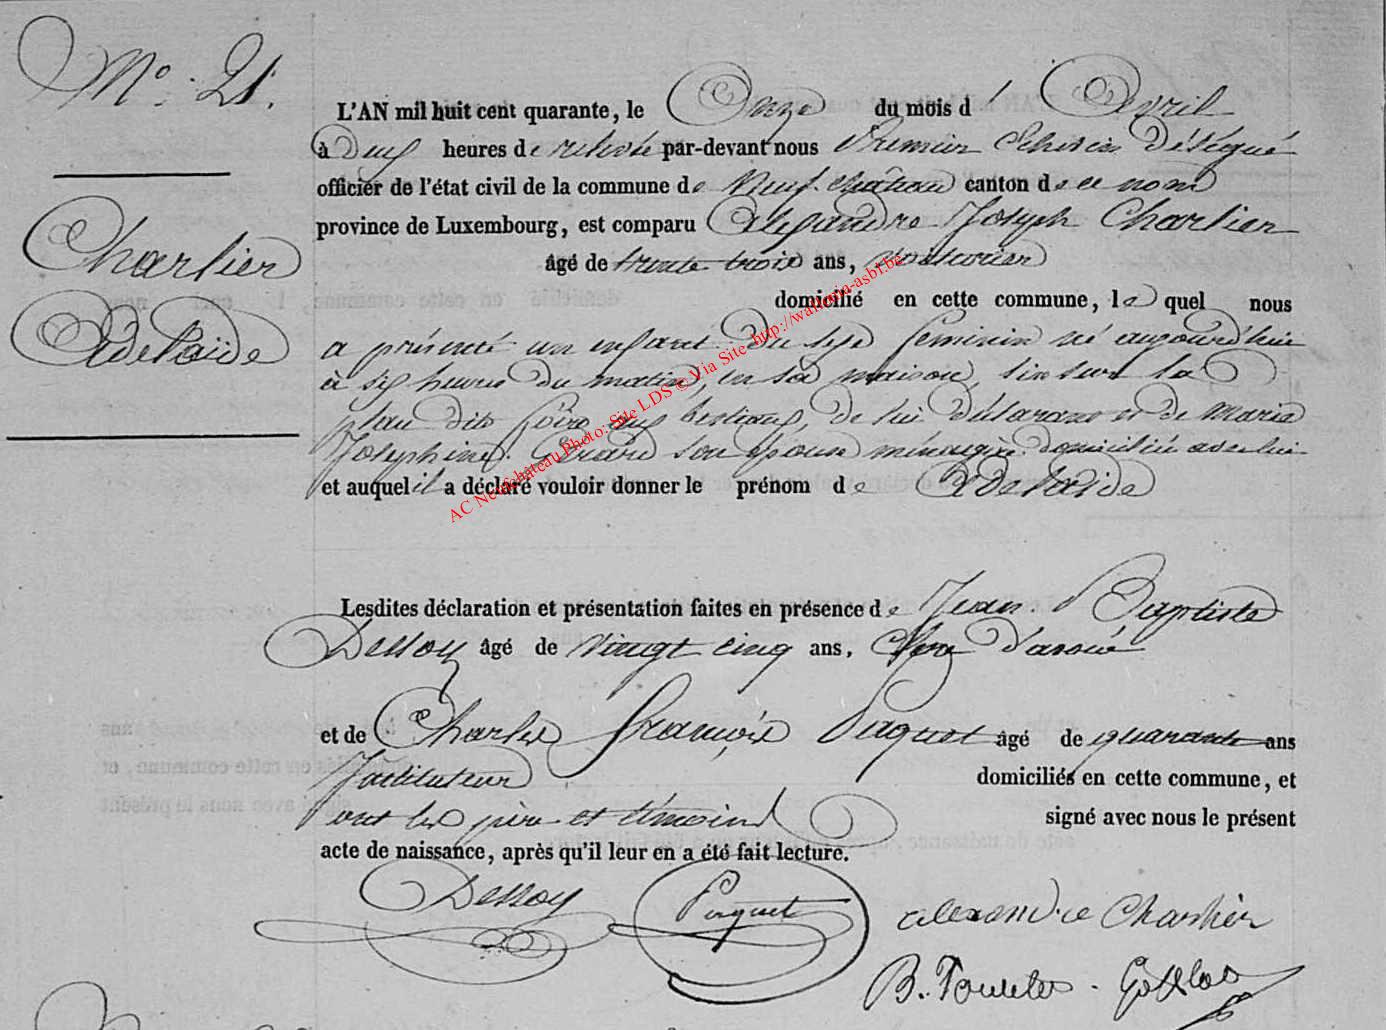 N° 21.
Charlier
Adelaïde
L'AN mil huit cent quarante, le Onze du mois d'Avril
à deux heures de relevée par-devant nous Premier Echevin Délégué
officier de l'état civil de la commune de Neufchâteau canton de ce nom
province de Luxembourg, est comparu Alexandre Joseph Charlier
âgé de trente trois ans, voiturier
domicilié en cette commune, le quel nous
a présenté un enfant du sexe féminin né aujourd'hui
à six heures du matin, en sa maison, sise sur la
place dite foire aux bestiaux, de lui déclarant et de Marie
Josephine Gerard son épouse ménagère domiciliée avec lui
et auquel il a déclaré vouloir donner le prénom de Adelaïde
Lesdites déclaration et présentation faites en présence de Jean Baptiste
Dessoy âgé de vingt cinq ans, Clerc d'avoué
et de Charles François Paquet âgé de quarante ans
Instituteur domiciliés en cette commune, et
ont les père et témoins signé avec nous le présent
acte de naissance, après qu'il leur en a été fait lecture.
Dessoy Paquet alexandre Charlier
AC Neufchâteau Photo: Site LDS © Via Site http://wallonia-asbl.be